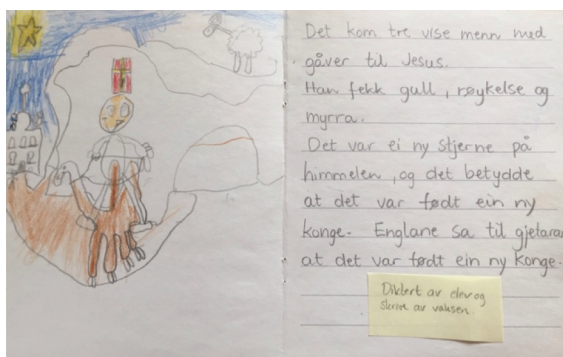 Det kom tre vise menn med
gåver til Jesus.
Han fekk gull, røykelse og
myrra.
Det var ei ny stjerne på
himmelen, og det betydde
at det var født ein ny
konge. Englane sa til gjetarar
at det var født ein ny konge.
Diktert av elev og
skrive av vaksen.